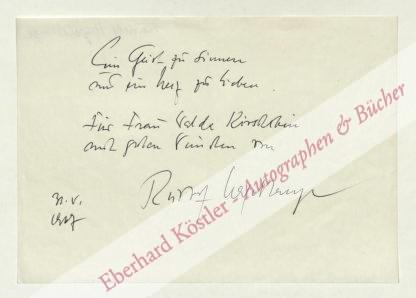 Ein Geist zu sinnen
und ein Herz zu lieben.
Für Frau
mit guten Wünschen von
Rudolf Hagelstange
31. V.
Eberhard Köstler - Autographen & Bücher